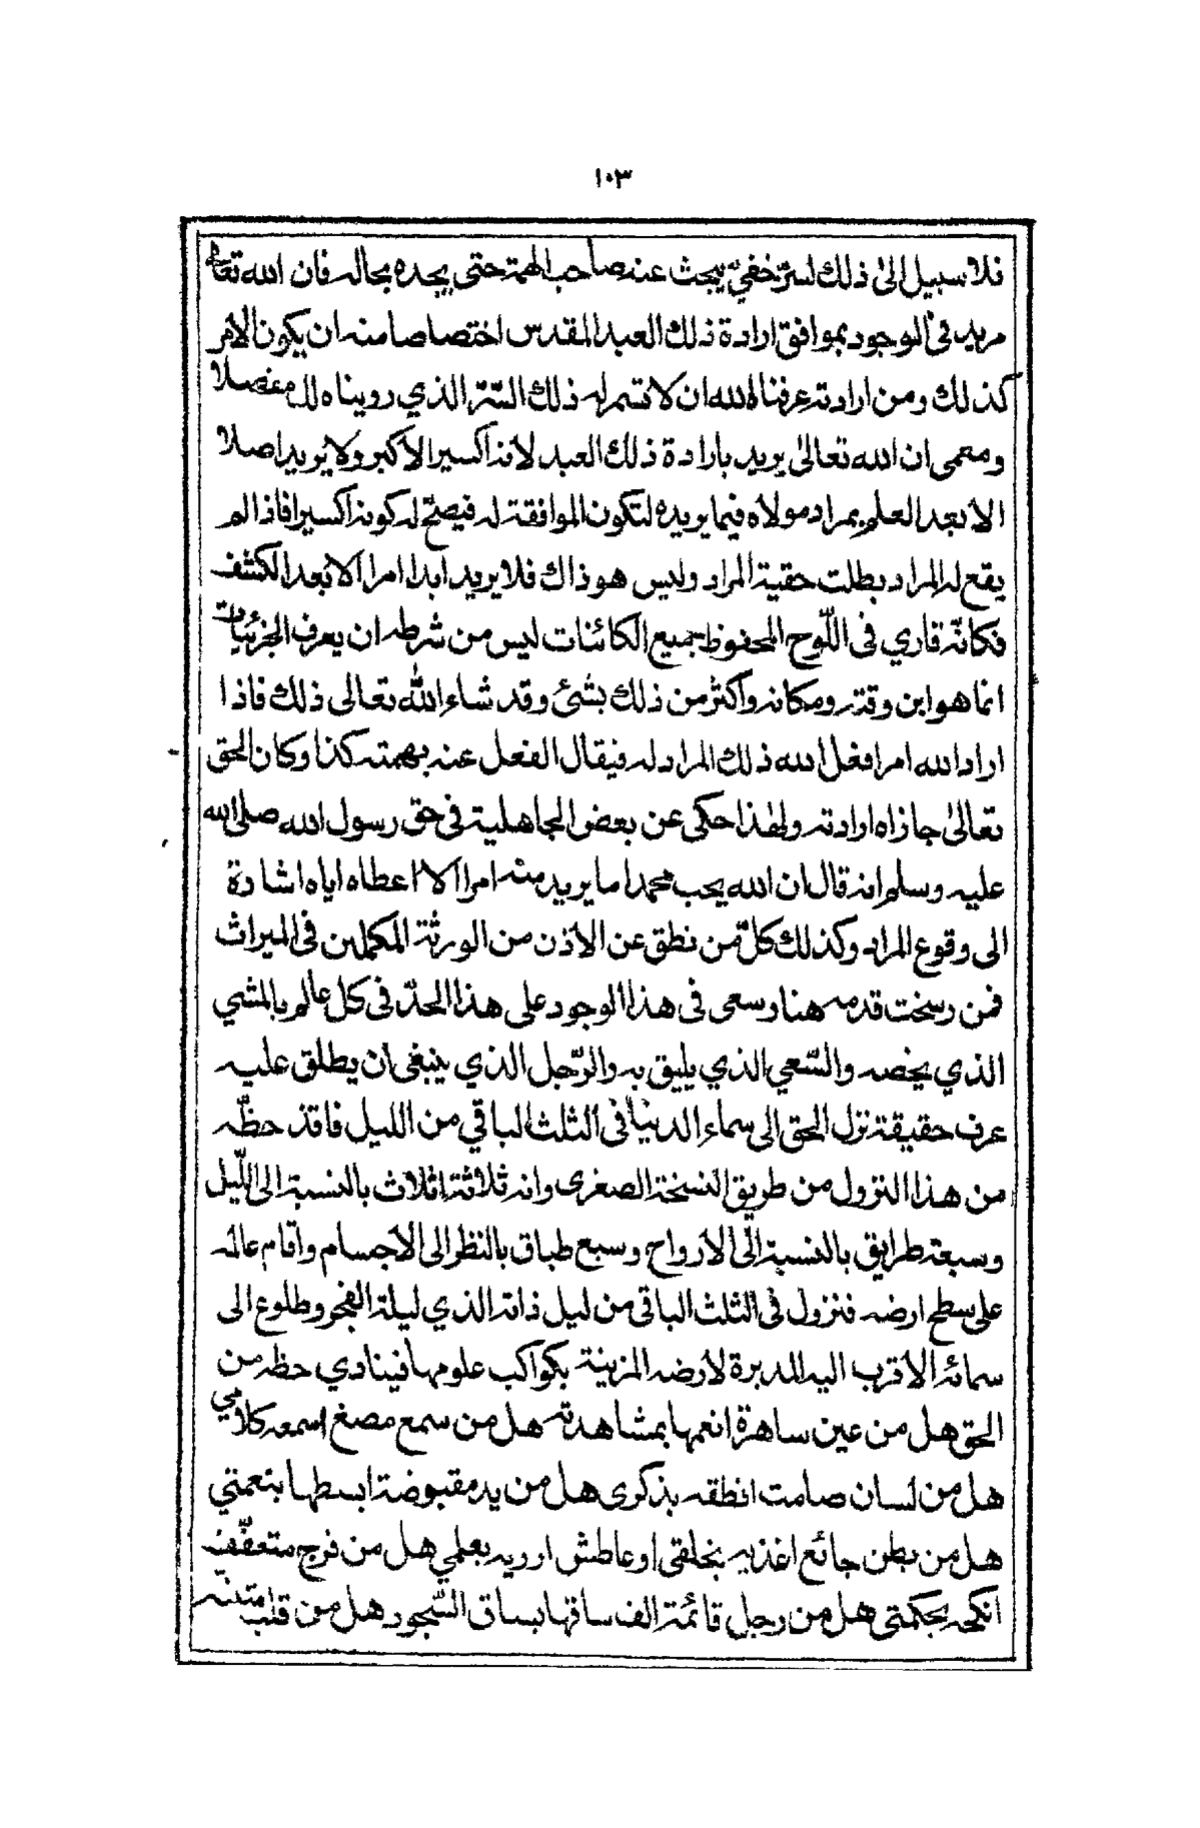 ١٠٣
فلا سبيل الى ذلك لسرّ خفيّ يبحث عنه صاحب الهمة حتى يجده بحاله فان الله تعالى
مريد في الوجود بموافق ارادة ذلك العبد المقدس اختصاصا منه ان يكون الأمر
كذلك ومن ارادته عرفنا الله ان لا تتم له ذلك السّر الذي رويناه لك مفصلا
ومعمى ان الله تعالىٰ يريد بارادة ذلك العبد لأنه اكسير الأكبر ولا يريد اصلا
الا بعد العلم بمراد مولاه فيما يريده لتكون الموافقة له فيصحّ له كونه اكسيرا فاذا لم
يقع له المراد بطلت حقية المراد وليس هو ذاك فلا يريد ابدا امرا الا بعد الكشف
فكانّه قاري في اللّوح المحفوظ جميع الكائنات ليس من شرطه ان يعرف الجزئيات
انما هو ابن وقته ومكانه واكثر من ذلك بشئ وقد شاء الله تعالى ذلك فاذا
اراد الله امرا فعل الله ذلك المراد له فيقال الفعل عنه بهمته كذا وكان الحق
تعالىٰ جازاه ارادته ولهذا حكى عن بعض الجاهلية في حق رسول الله صلى الله
عليه وسلم انه قال ان الله يحب محمدا ما يريد منه امرا الا اعطاه اياه اشارة
الى وقوع المراد وكذلك كلّ من نطق عن الأذن من الورثة المكملين في الميراث
فمن رسخت قدمه هنا وسعى في هذا الوجود على هذا الحدّ في كل عالم بالمشي
الذي يخصه والسّعي الذي يليق به والرّجل الذي ينبغى ان يطلق عليه
عرف حقيقة نزل الحق الى سماء الدنيا في الثلث الباقي من الليل فاقذ حظّه
من هذا النزول من طريق النسخة الصغرى وانه ثلاثة اثلاث بالنسبة الى اللّيل
وسبعة طرايق بالنسبة الى الأرواح وسبع طباق بالنظر الى الأجسام واقام عالمه
على سطح ارضه فنزول في الثلث الباقي من ليل ذاته الذي ليلة الفجر وطلوع الى
سمائه الأقرب اليه المدبرة لأرضه المزينة بكواكب علومها فينادي حظه من
الحق هل من عين ساهرة انعمها بمشاهدته هل من سمع مصغ اسمعه كلامي
هل من لسان صامت انطقه بذكرى هل من يد مقبوضة ابسطها بنعمتي
هل من بطن جائع اغذيه بخلقى او عاطش ارويه بعلمي هل من فرج متعفّف
انكحه بحكمتى هل من رجل قائمة الف ساقها بساق السّجود هل من قلب متنبّه